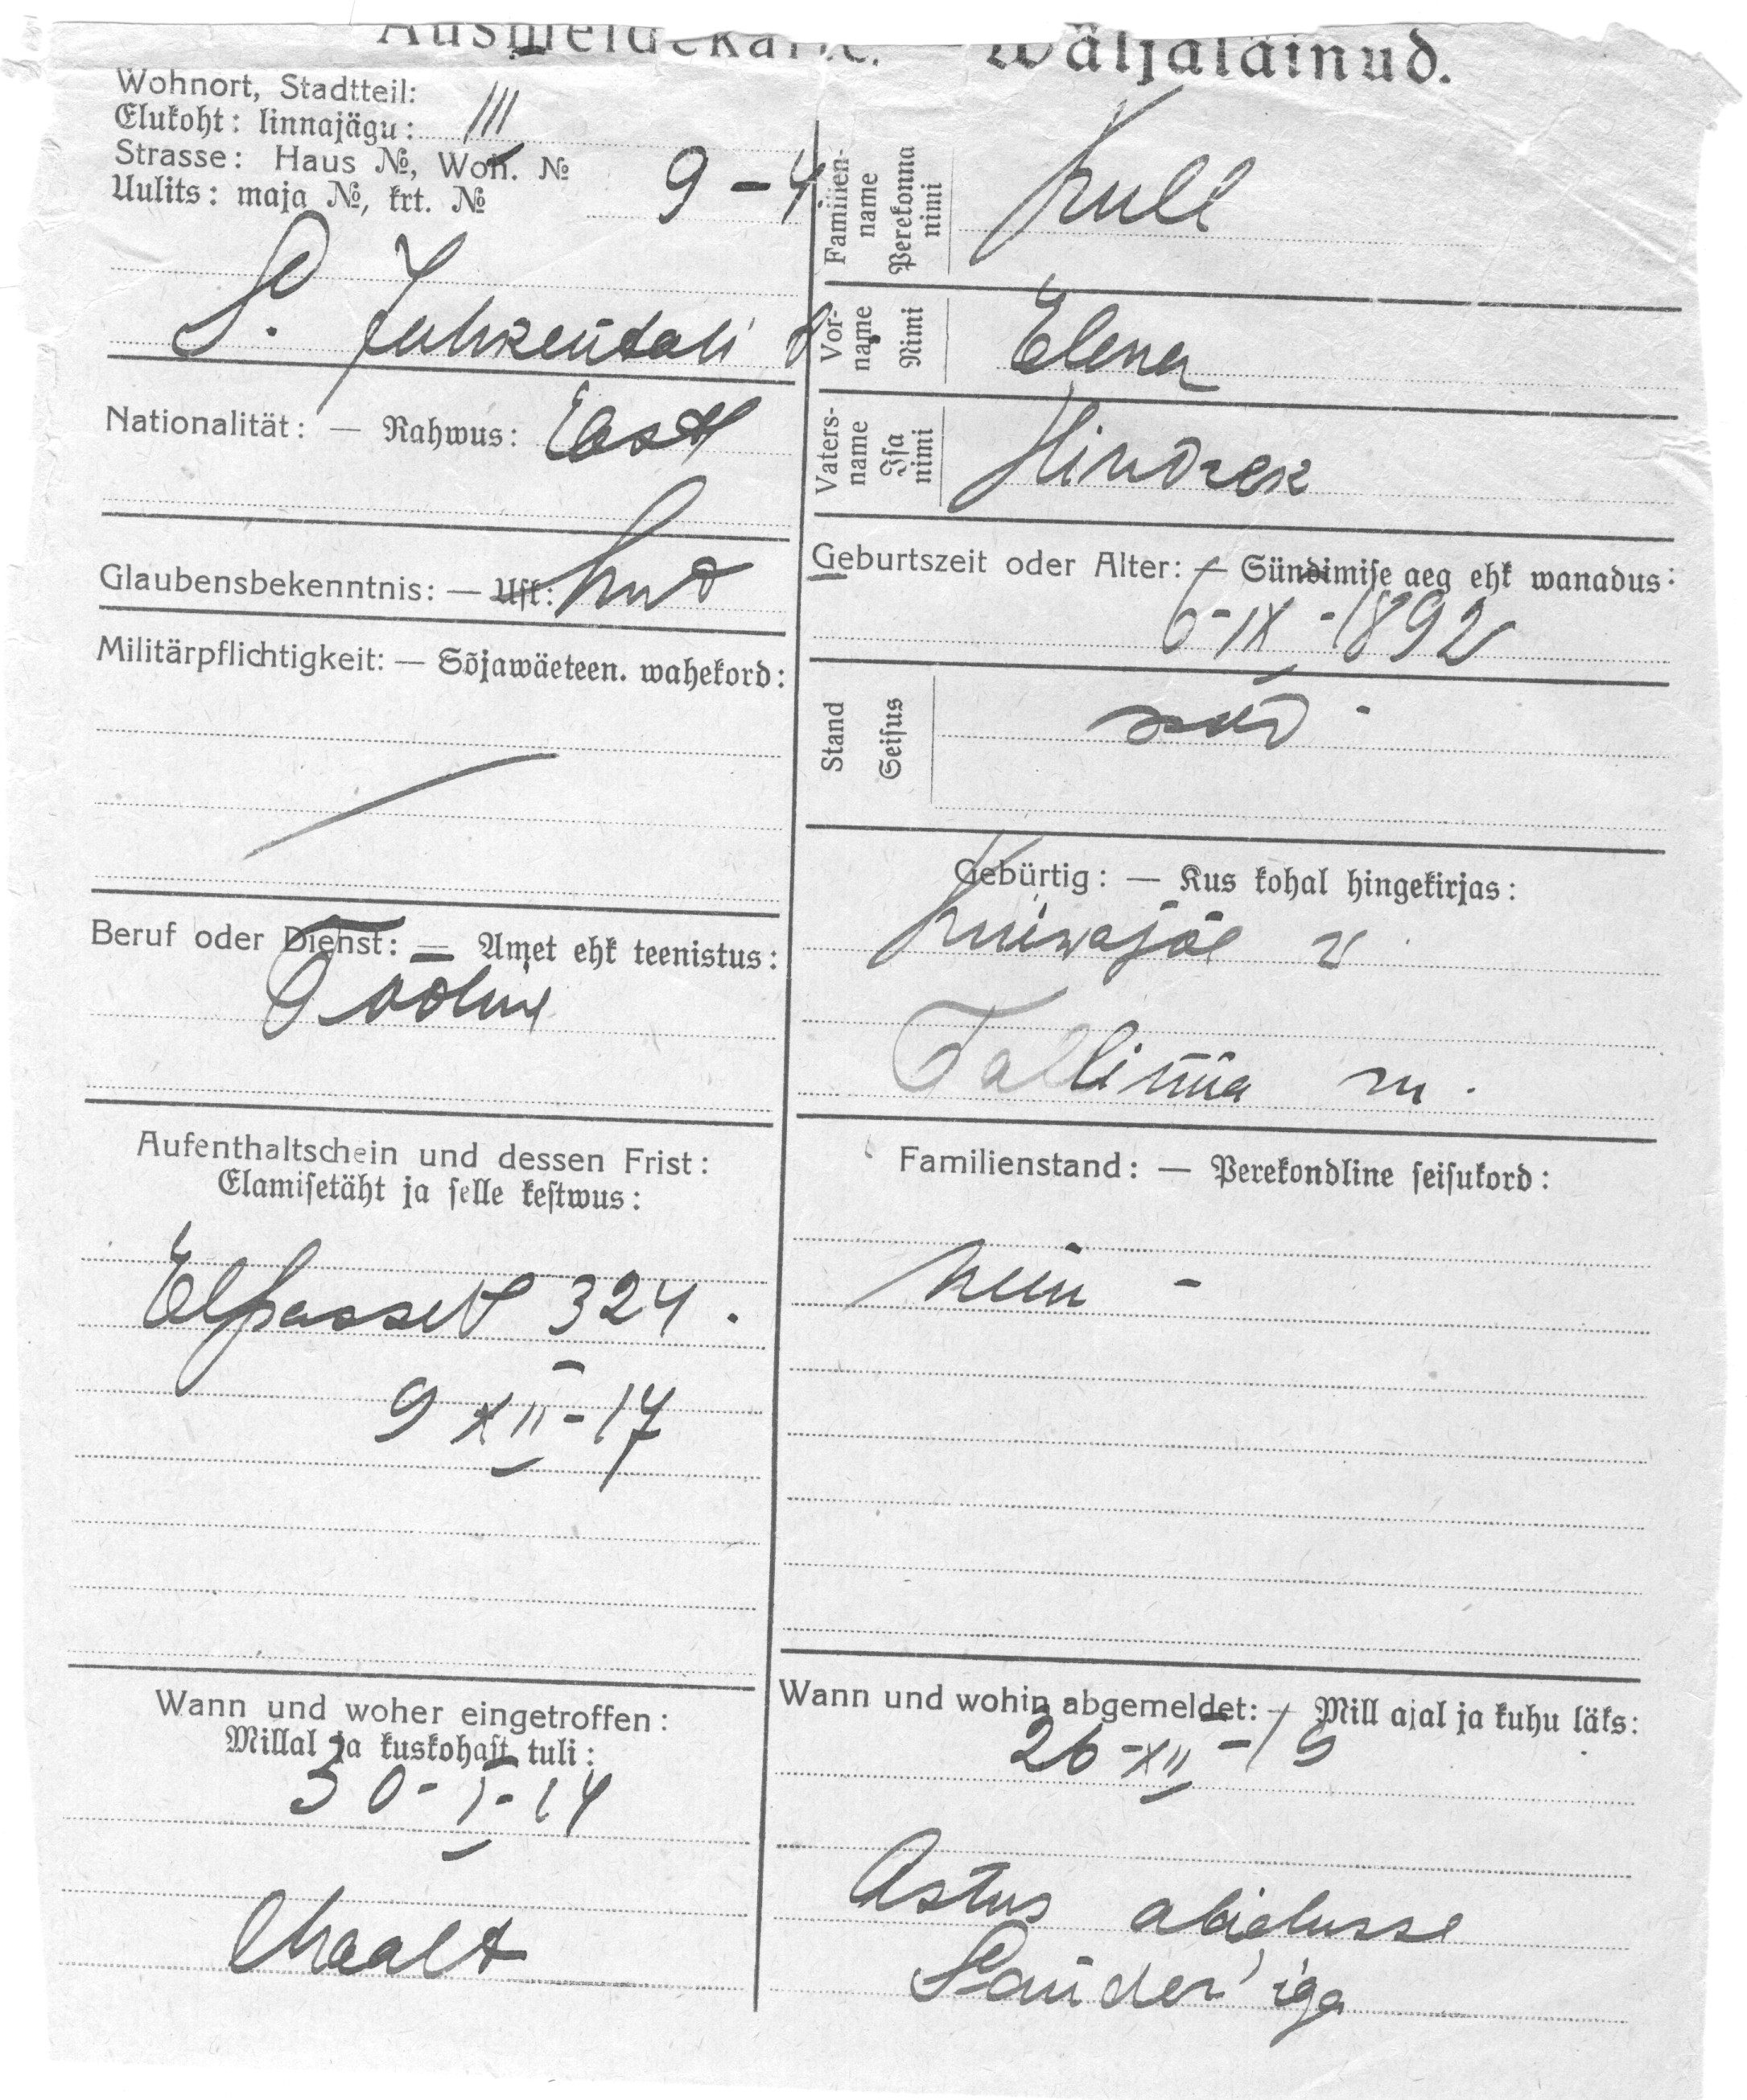 Ausmeldekarte. — Wäljaläinud.
Wohnort, Stadtteil:
Elukoht: linnajägu: III
Strasse: Haus №, Woh. №
Uulits: maja №, krt. № 9-4.
S. Juhkentali
Nationalität: — Rahwus: Eesti
Glaubensbekenntnis: — Usk:
Militärpflichtigkeit: — Sõjawäeteen. wahekord:
Beruf oder Dienst: — Amet ehk teenistus:
Tööline
Aufenthaltschein und dessen Frist:
Elamisetäht ja selle kestwus:
Elpasset 324.
9 XII-17
Wann und woher eingetroffen:
Millal ja kuskohast tuli:
30-I-14
Maalt
Familien-
name
Perekonna
nimi
Kull
Vor-
name
Nimi
Elena
Vaters-
name
Isa
nimi
Hindrek
Geburtszeit oder Alter: — Sündimise aeg ehk wanadus:
6-IX-1892
Stand
Seisus
Gebürtig: — Kus kohal hingekirjas:
Kuiwajõe v
Tallinna m.
Familienstand: — Perekondline seisukord:
Wann und wohin abgemeldet: — Mill ajal ja kuhu läks:
26-XII-19
Astus abielusse
Sander'iga